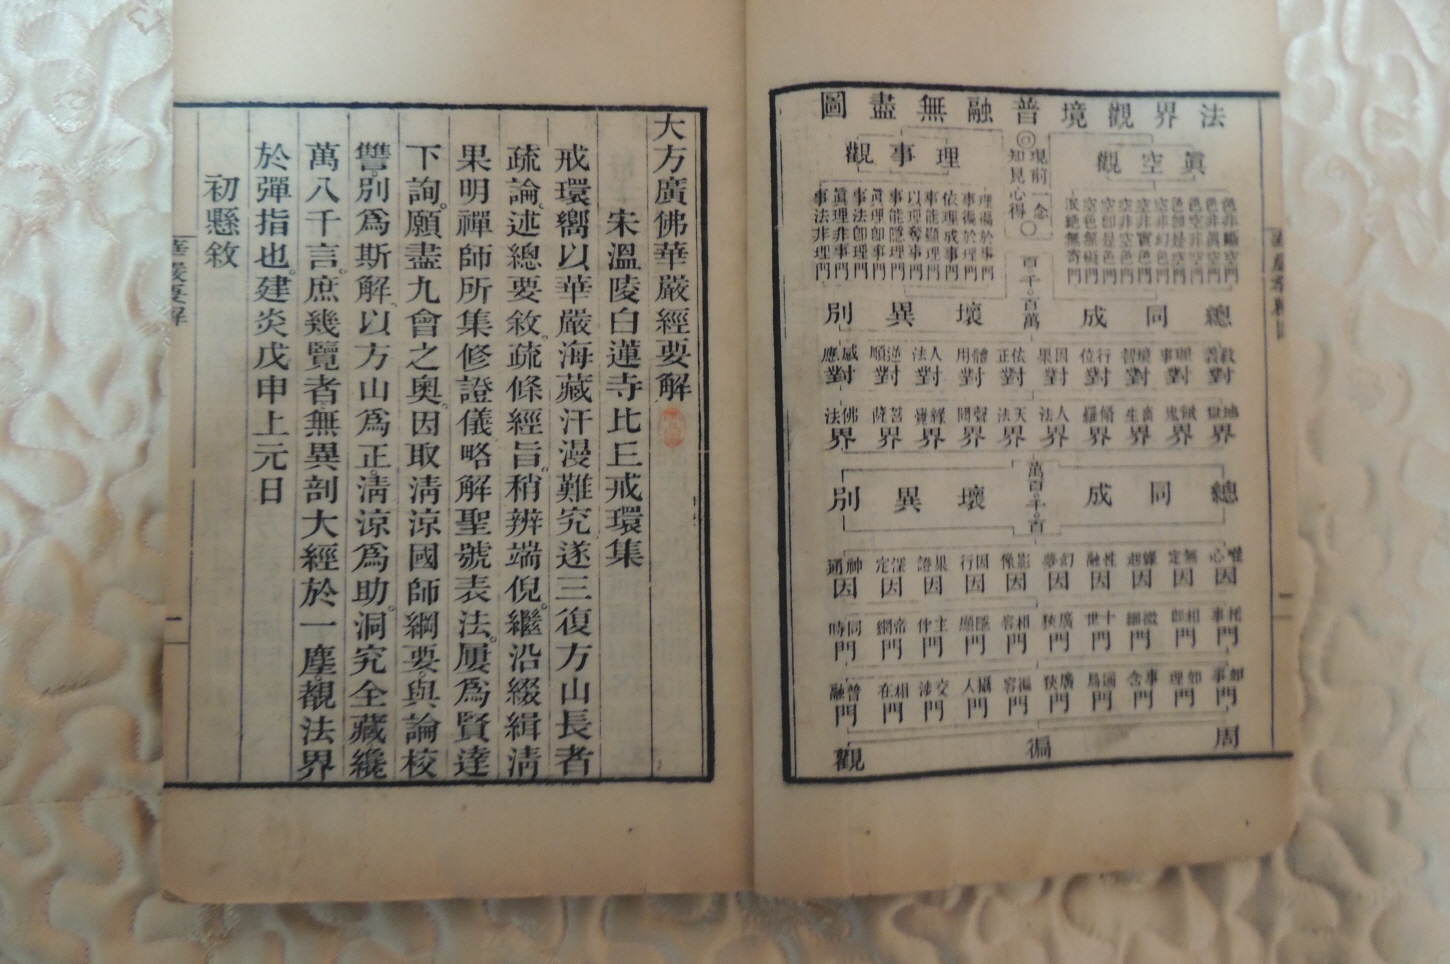 法界觀境普融無盡圖
眞空觀
理事觀
現前一念
知見心得
百千百萬
理徧於事門
事徧於理門
依理成事門
事能顯理門
以理奪事門
事能隱理門
眞理卽事門
事法卽理門
眞理非事門
事法非理門
總同成
壞異別
教義對
理事對
境智對
行位對
因果對
依正對
體用對
人法對
逆順對
感應對
地獄界
餓鬼界
畜生界
脩羅界
人法界
天法界
聲聞界
緣覺界
菩薩界
佛法界
萬百千百
總同成
壞異別
唯心因
無定因
緣起因
性融因
幻夢因
影像因
因行因
果證因
深定因
神通因
托事門
相卽門
微細門
十世門
廣狹門
相容門
隱顯門
主伴門
帝網門
同時門
如事門
如理門
事含門
通局門
廣狹門
徧容門
攝入門
交涉門
相在門
普融門
周徧觀
大方廣佛華嚴經要解
宋溫陵白蓮寺比丘戒環集
戒環嚮以華嚴海藏汗漫難究遂三復方山長者
疏論述總要敘疏條經旨稍辨端倪繼沿綴緝淸
果明禪師所集修證儀略解聖號表法屢爲賢達
下詢願盡九會之奧因取淸涼國師綱要與論校
讐別爲斯解以方山爲正淸涼爲助洞究全藏纔
萬八千言庶幾覽者無異剖大經於一塵覩法界
於彈指也建炎戊申上元日
初懸敘
華嚴要解
一